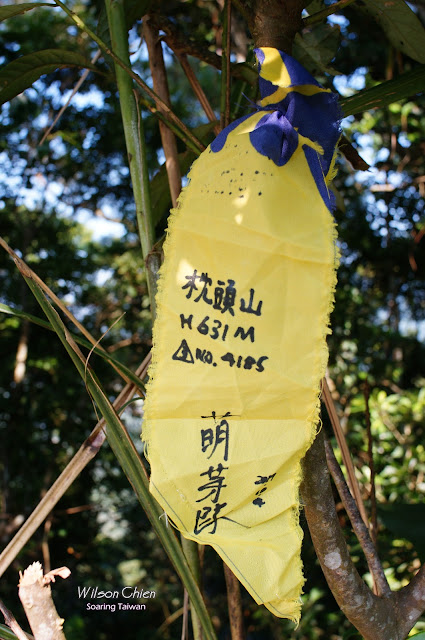 枕頭山
H 631 M
NO. 4185
萌芽隊
Wilson Chien
Soaring Taiwan